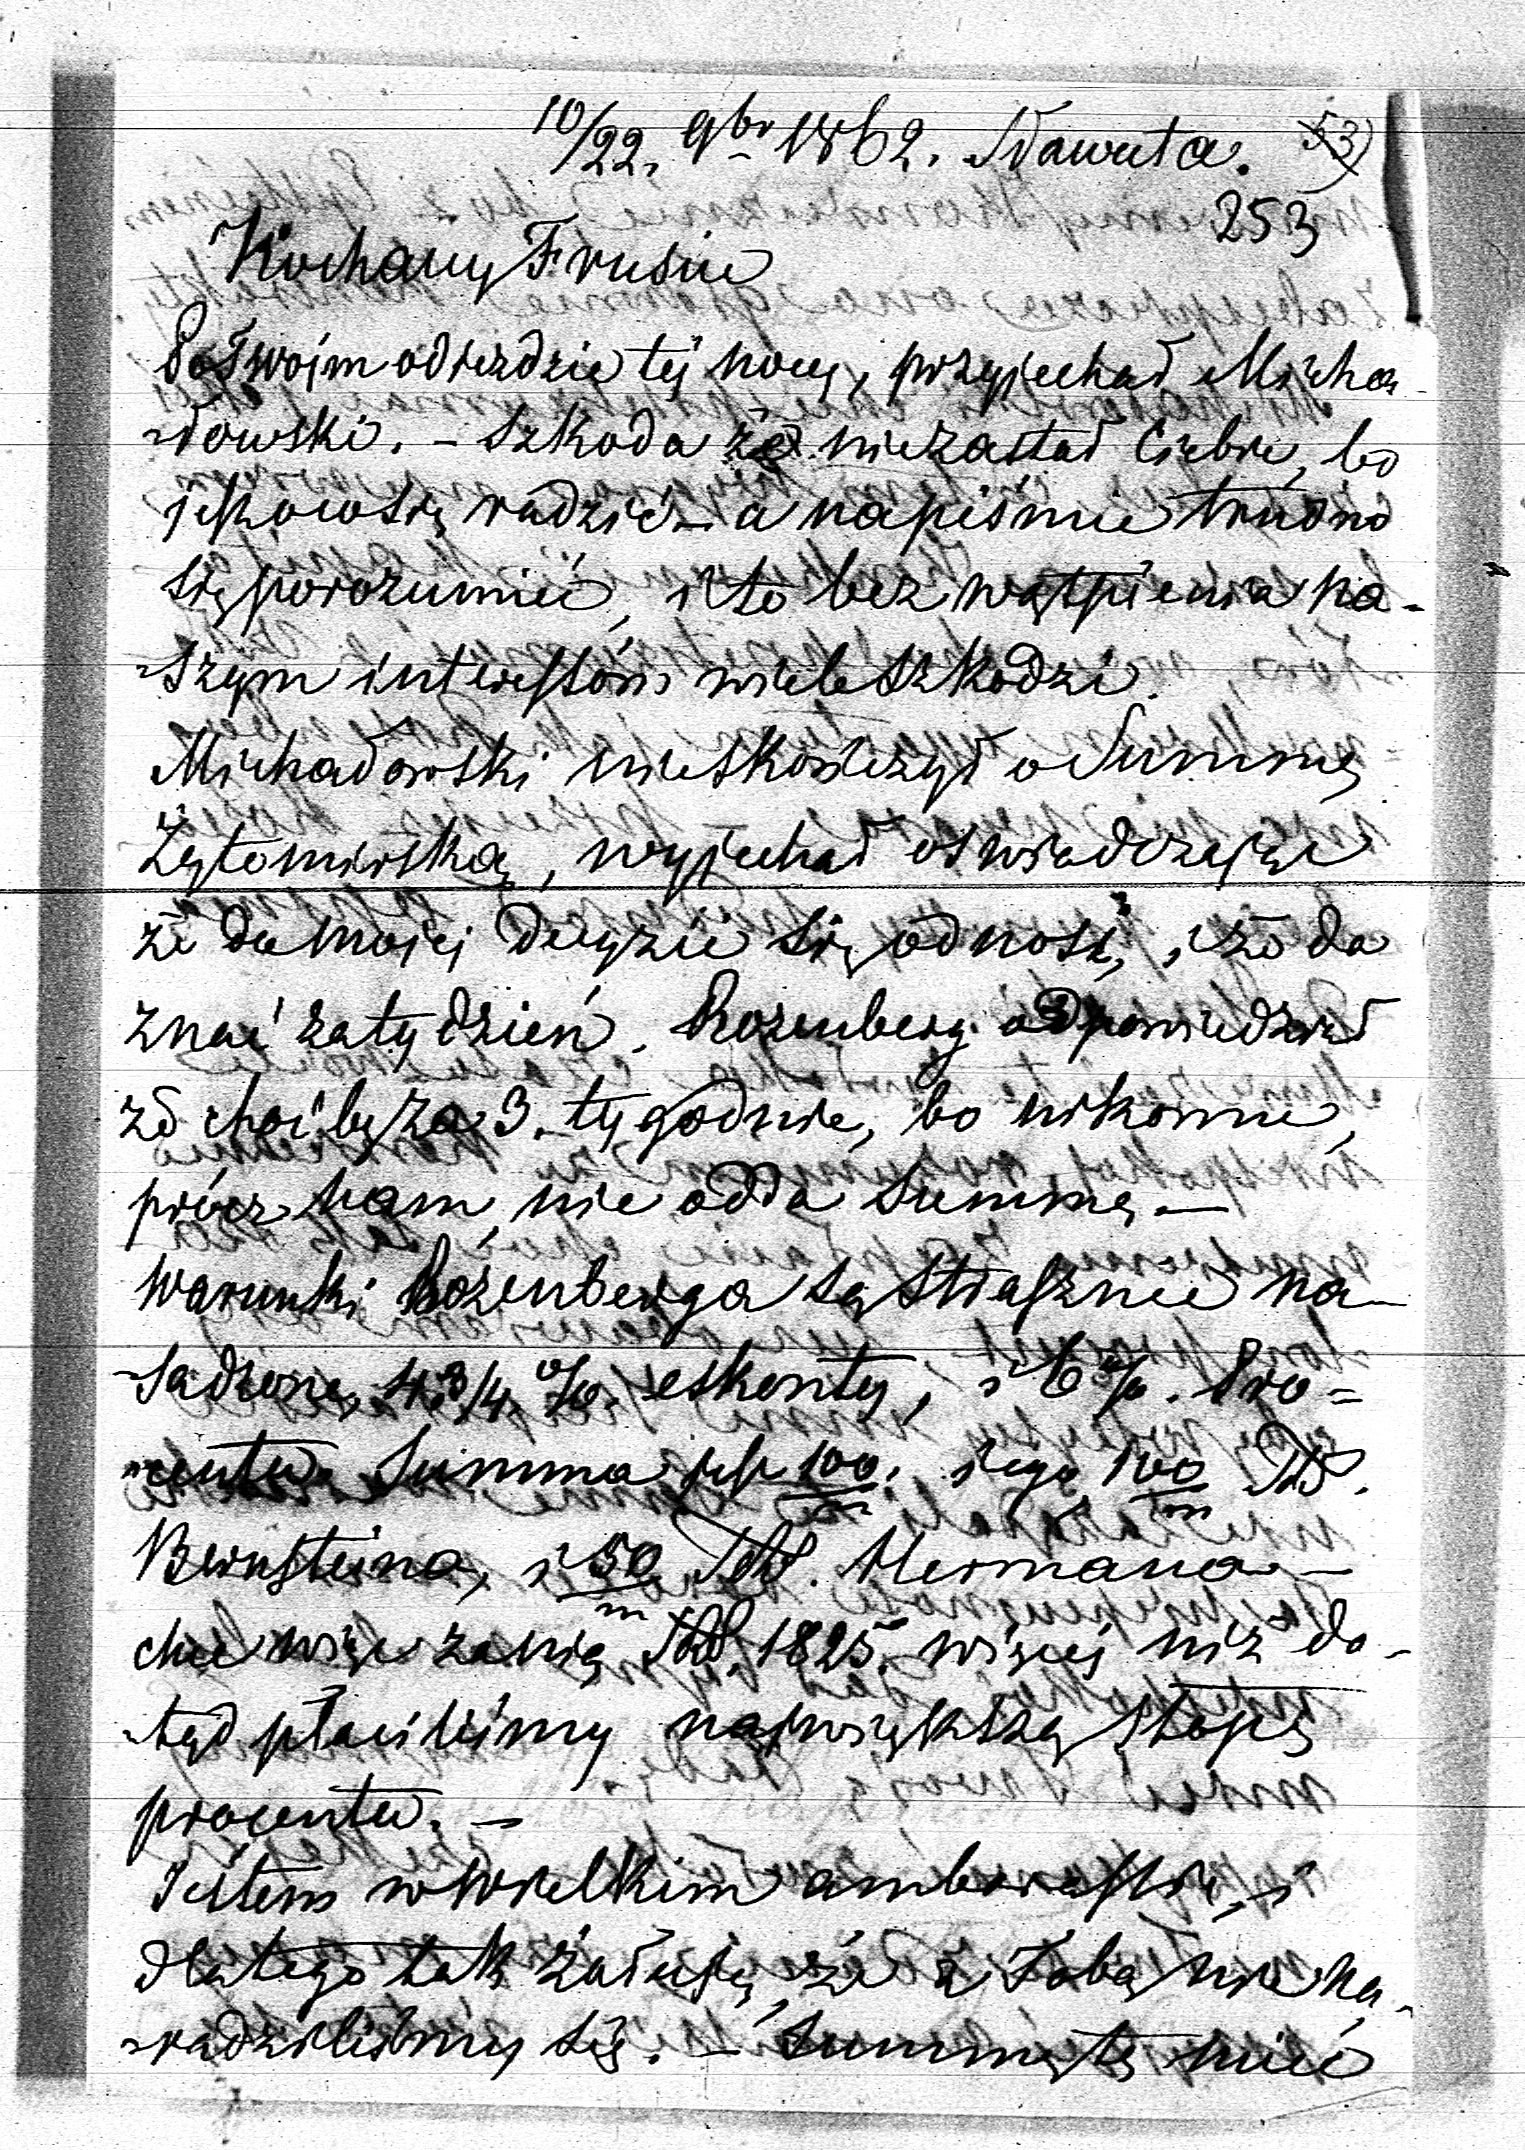 10/22. 9br 1862. Sławuta. 53)
253
Kochany Frusiu
Po Twoim odjezdzie téj nocy, przyjechał Micha-
-łowski. - Szkoda że niezastał Ciebie, bo
jest o co się radzić - a napiśmie trudno
się porozumieć, i to bez wątpienia na-
-szym interessóm wiele szkodzi.
Michałowski nieskończył o Summę
Żytomirską, wyjechał oswiadczając
że do mojéj decyzii się odnosi, i że da
znać za tydzień. Rozenberg odpowiedział
że choćby za 3. tygodnie, bo nikomu,
prócz nam, nie odda Summę -
Warunki Rozenberga są strasznie na-
-sadzone, 4 3/4 %. eskonty, i 6 %. Pro=
-centu. Summa jest 100/m i ego 100/m Rs.
Bernsteina, i 50/m Rs. Hermana -
chce więc za nią Rs. 1825. więcéj niż do-
-tąd płaciliśmy największą stopę
procentu. -
Jestem w wielkim ambarassie, i
dlatego tak żałuję, że z Tobą nie na-
-radziliśmy się. - Summę tę mieć